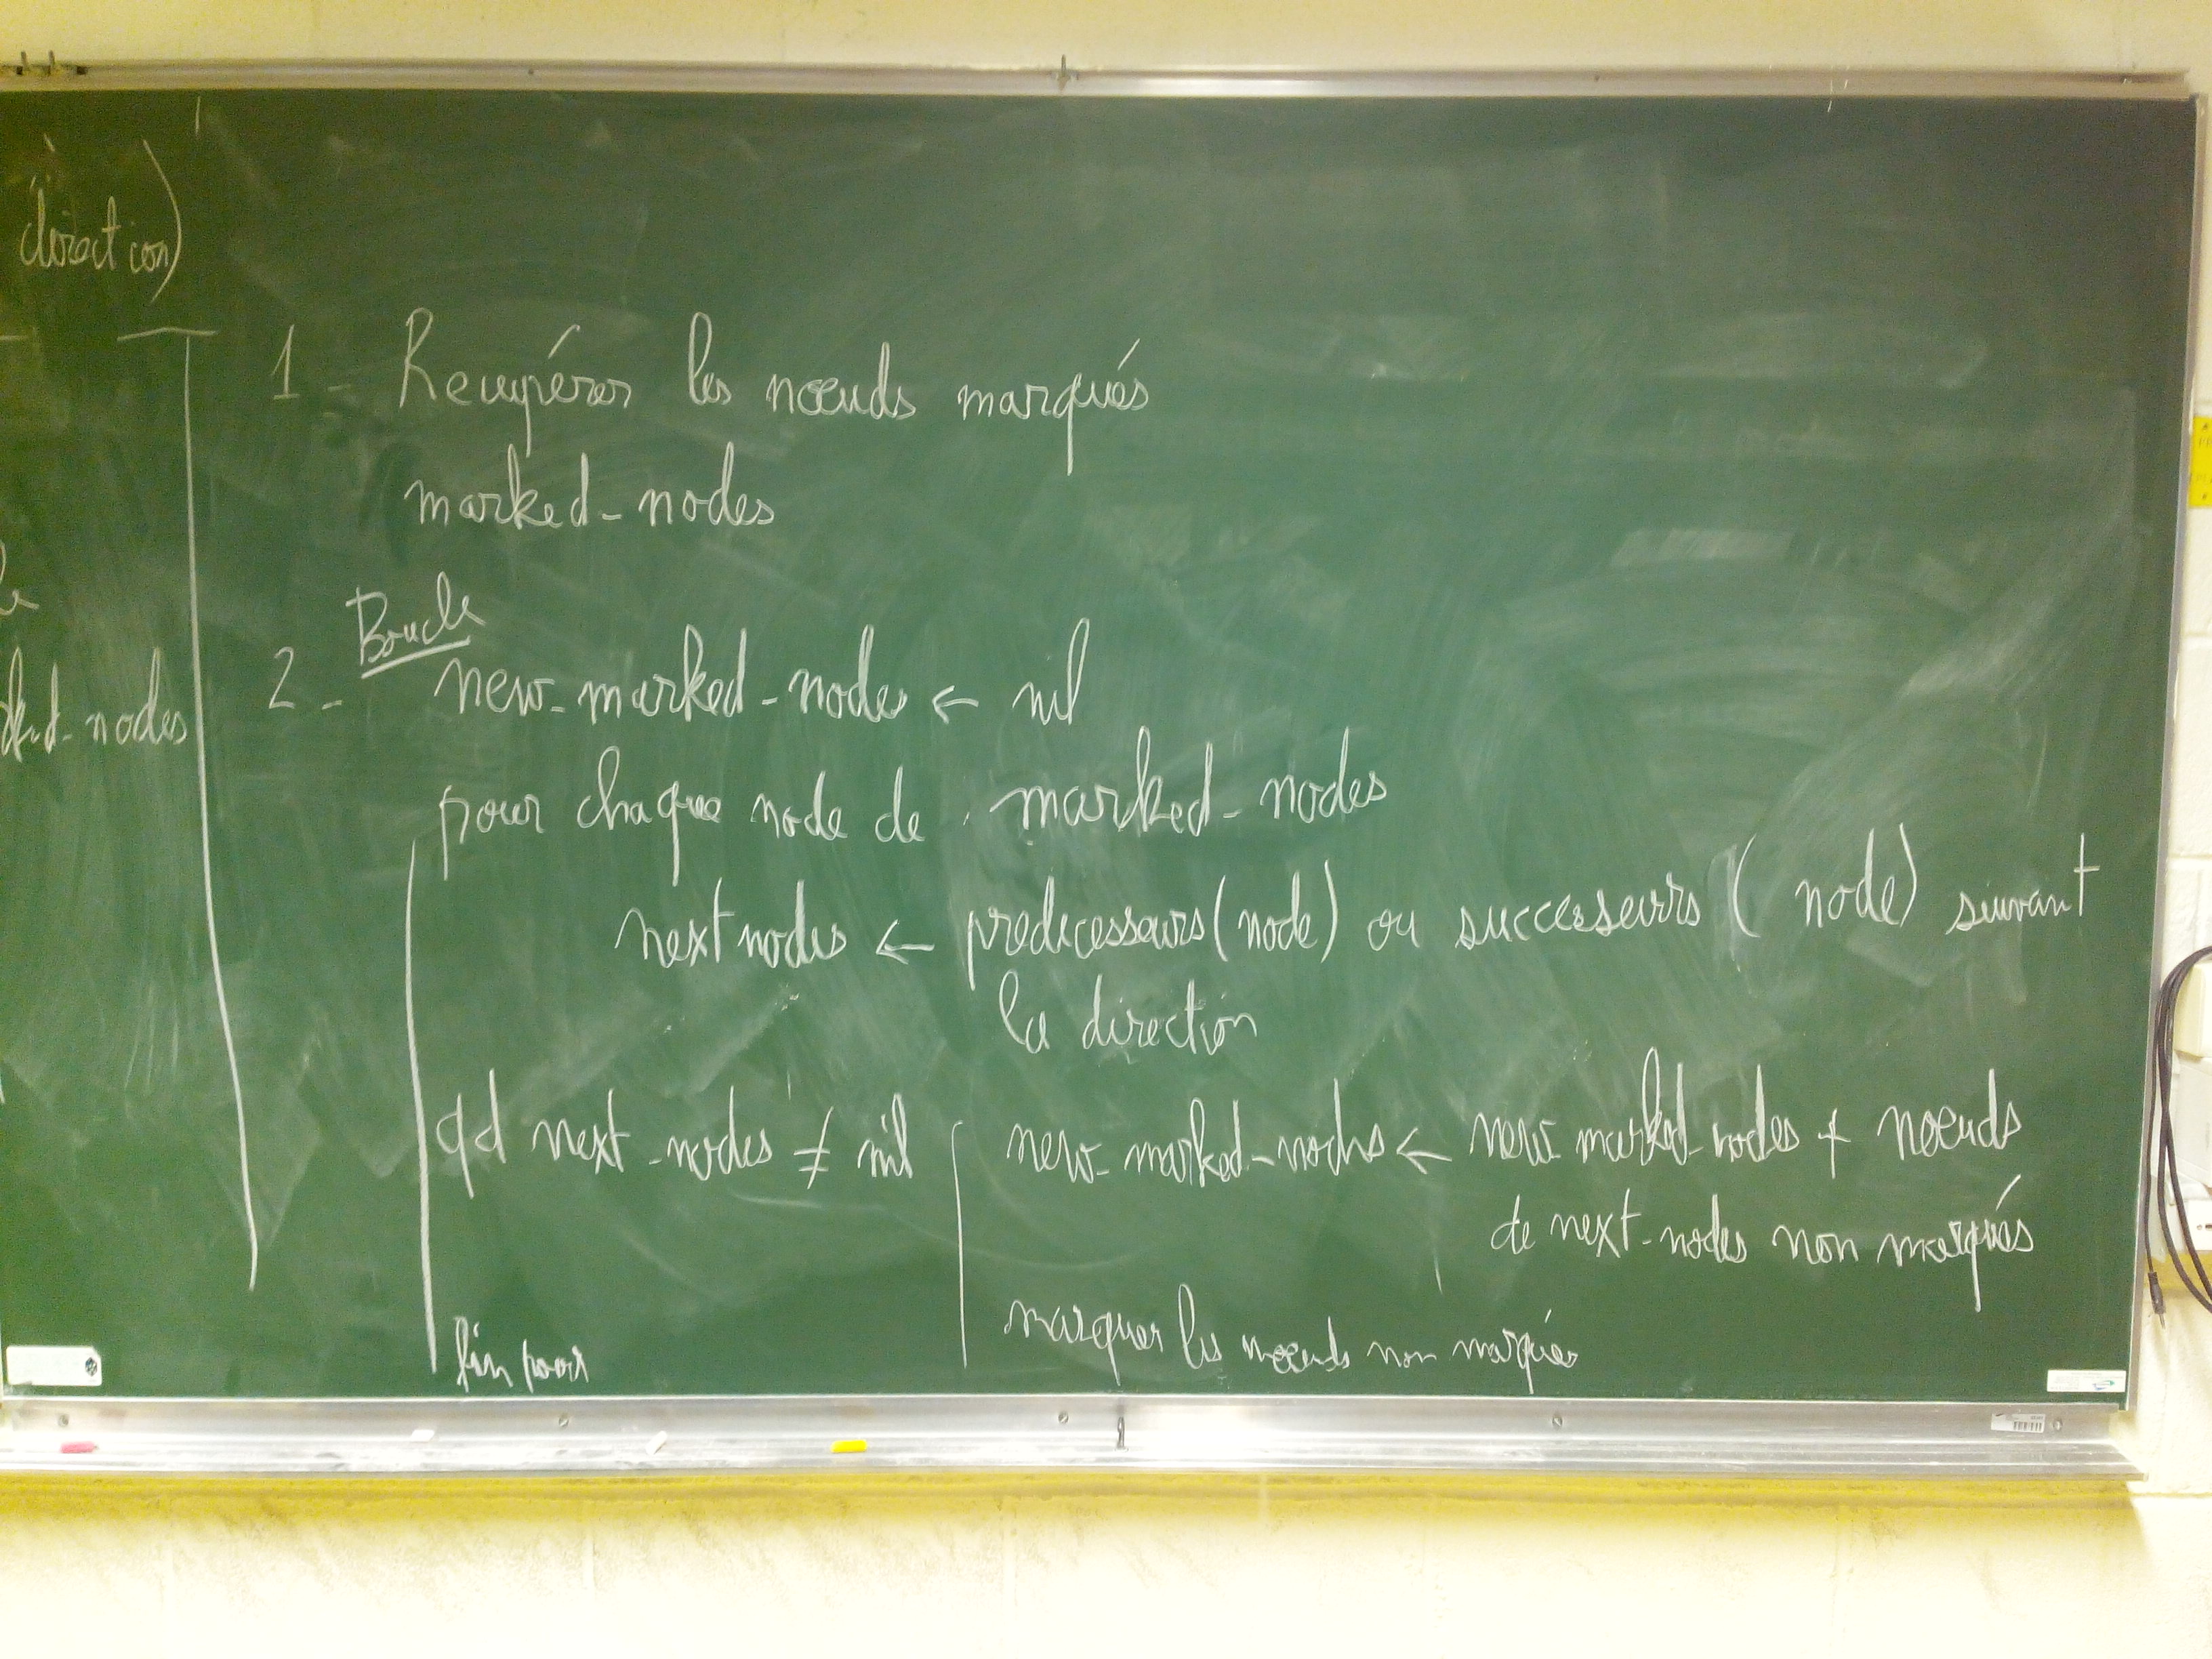 direction)
nodes
1 - Recupérer les nœuds marqués
marked-nodes
2 - Boucle
new-marked-nodes ← nil
pour chaque node de marked-nodes
next nodes ← predecesseurs (node) ou successeurs ( node) suivant
la direction
qd next-nodes ≠ nil new-marked-nodes ← new marked-nodes + nœuds
de next-nodes non marqués
marquer les nœuds non marqués
fin pour